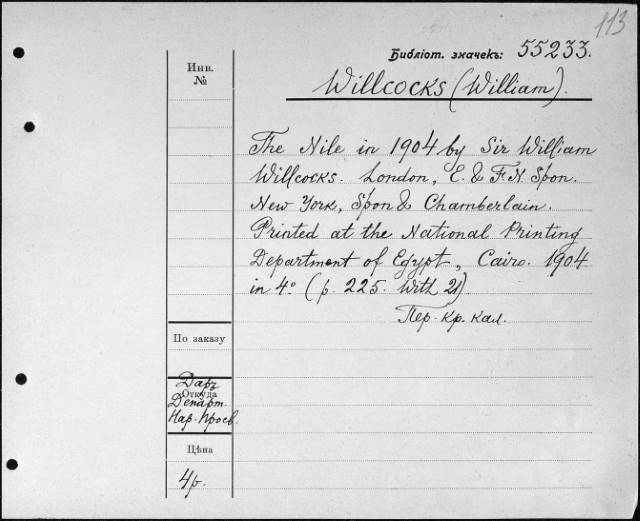 113
Библіот. значекъ: 55233.
Инв.
№
Willcocks (William).
The Nile in 1904 by Sir William
Willcocks. London, E. & F. N. Spon.
New York, Spon & Chamberlain.
Printed at the National Printing
Department of Egypt, Cairo. 1904
in 4° (p. 225. With 21).
Пер. кр. кал.
По заказу
Откуда
Даръ
Департ.
Нар. просв.
Цѣна
4р.